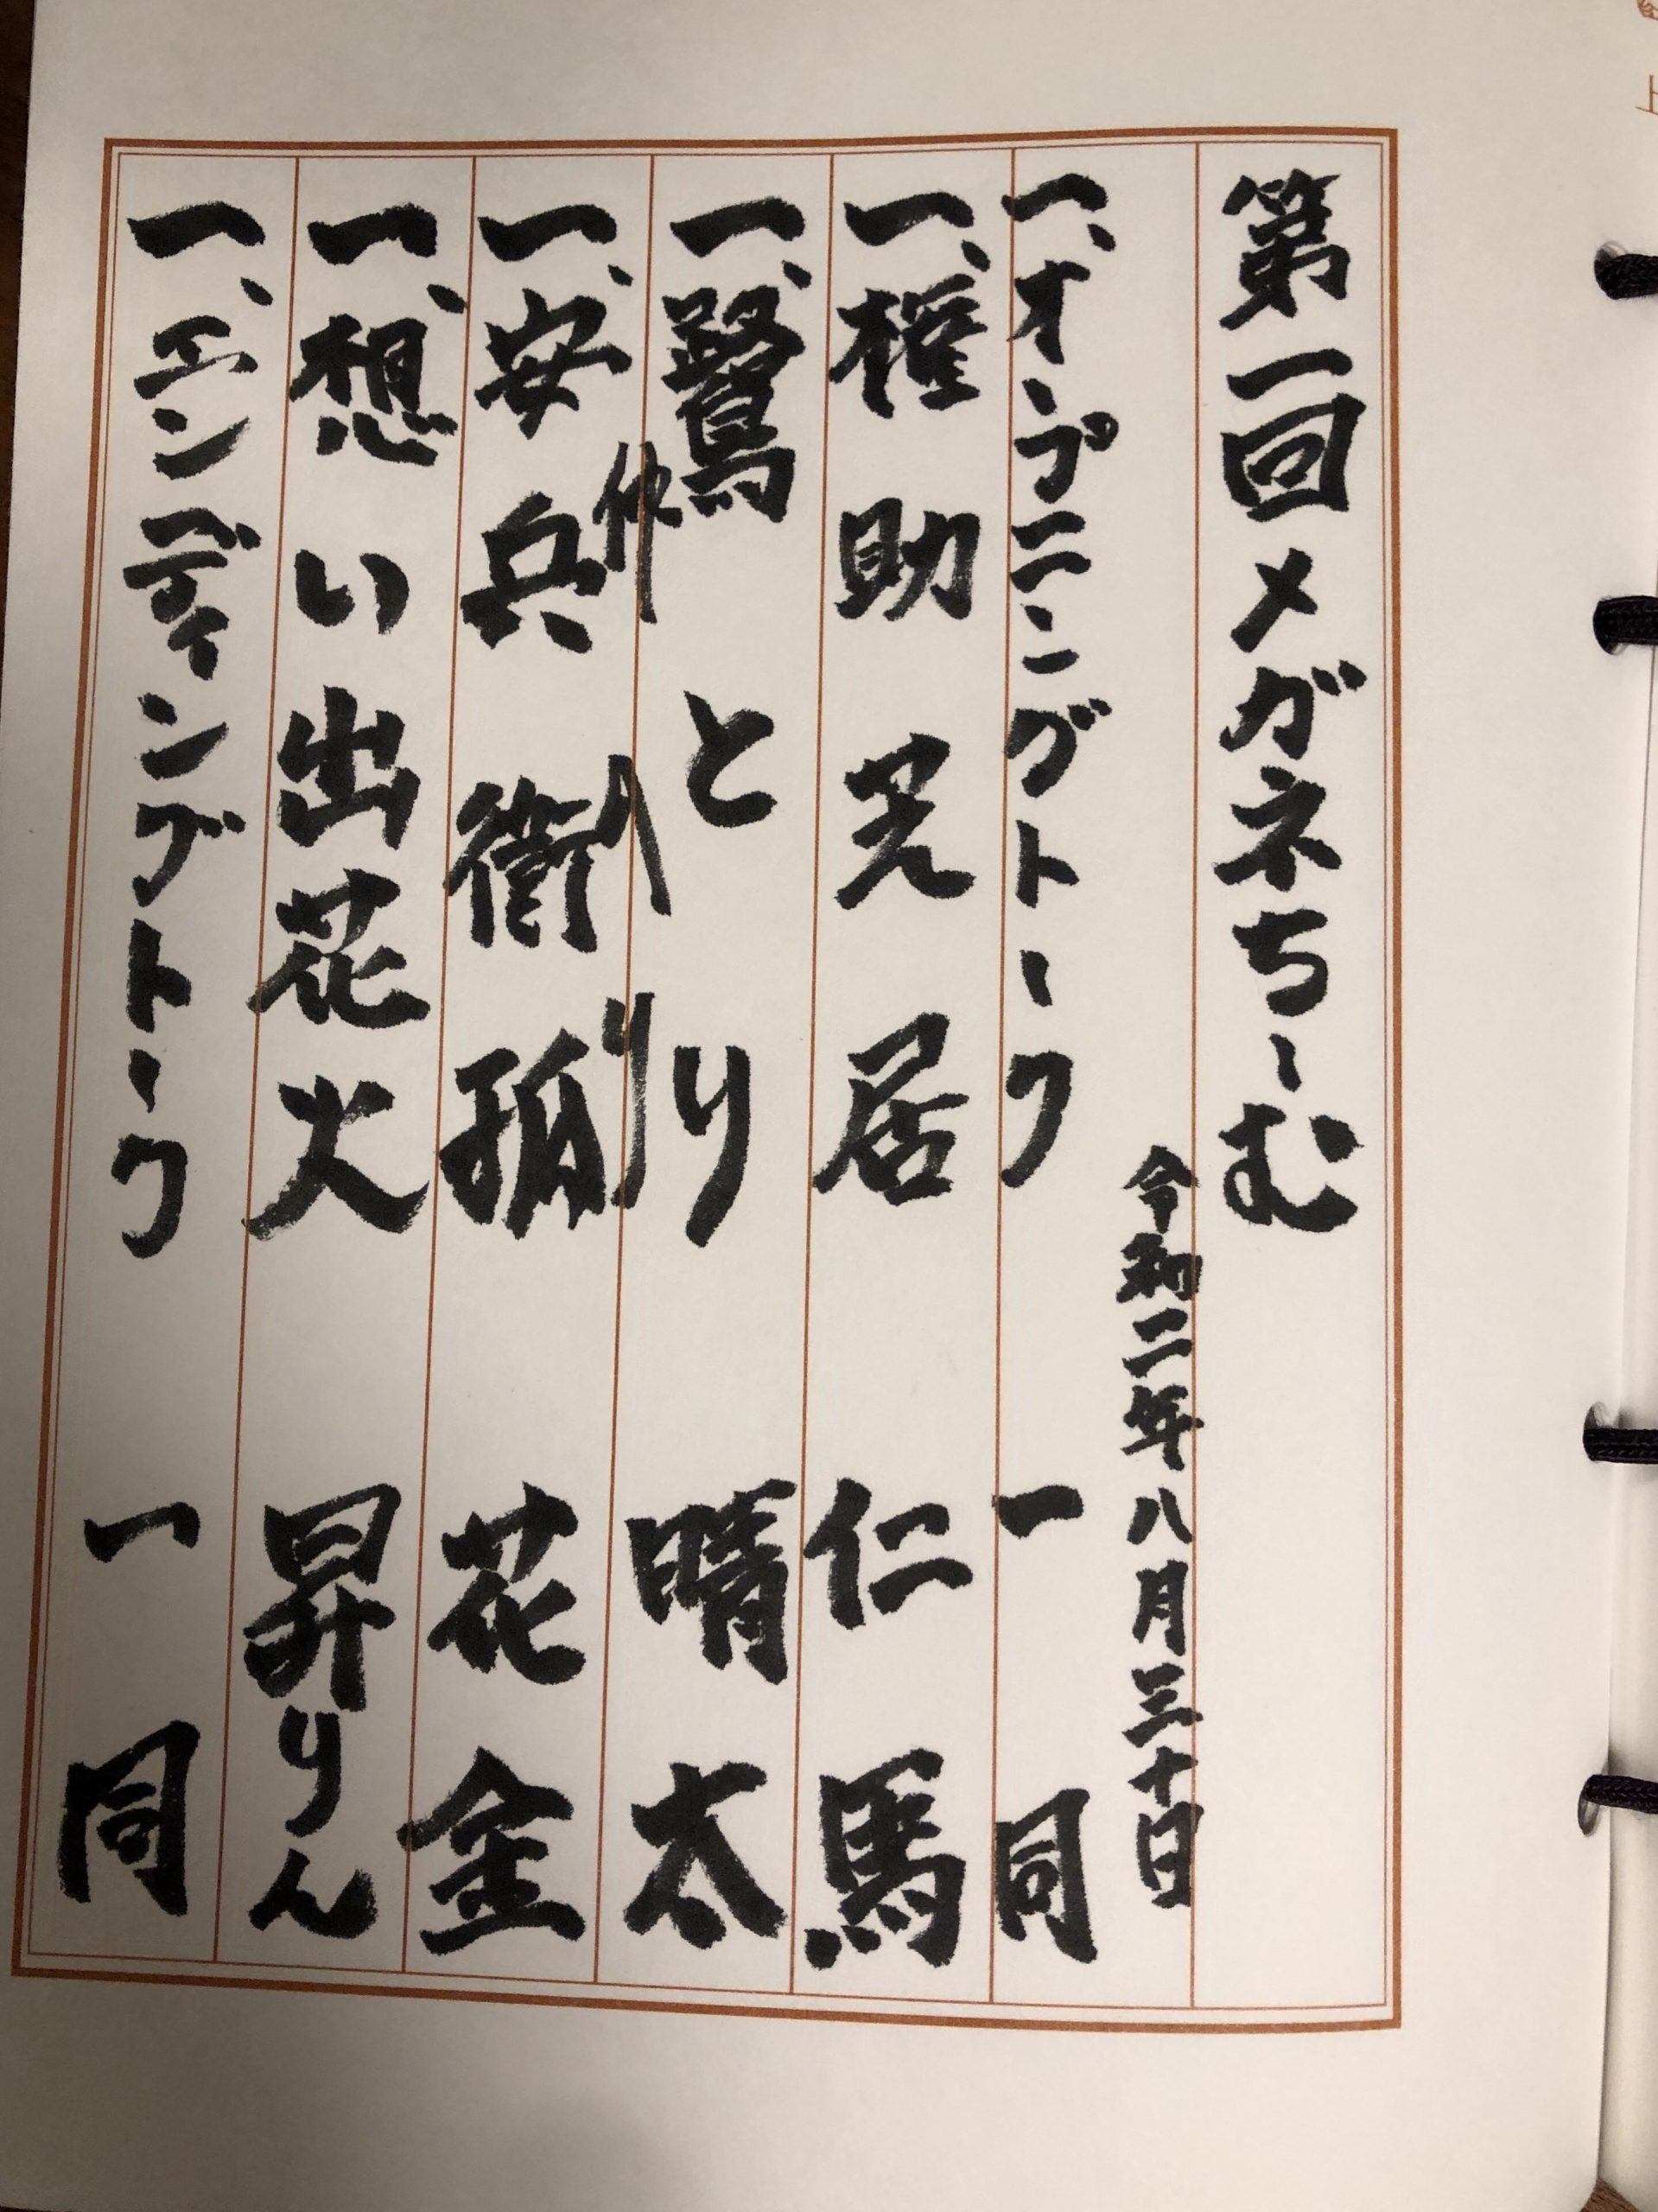 第一回メガネちーむ
令和二年八月三十日
一、オープニングトーク 一同
一、権助芝居 仁馬
一、鷺とり 晴太
仲入り
一、安兵衛狐 花金
一、想い出花火 昇りん
一、エンディングトーク 一同